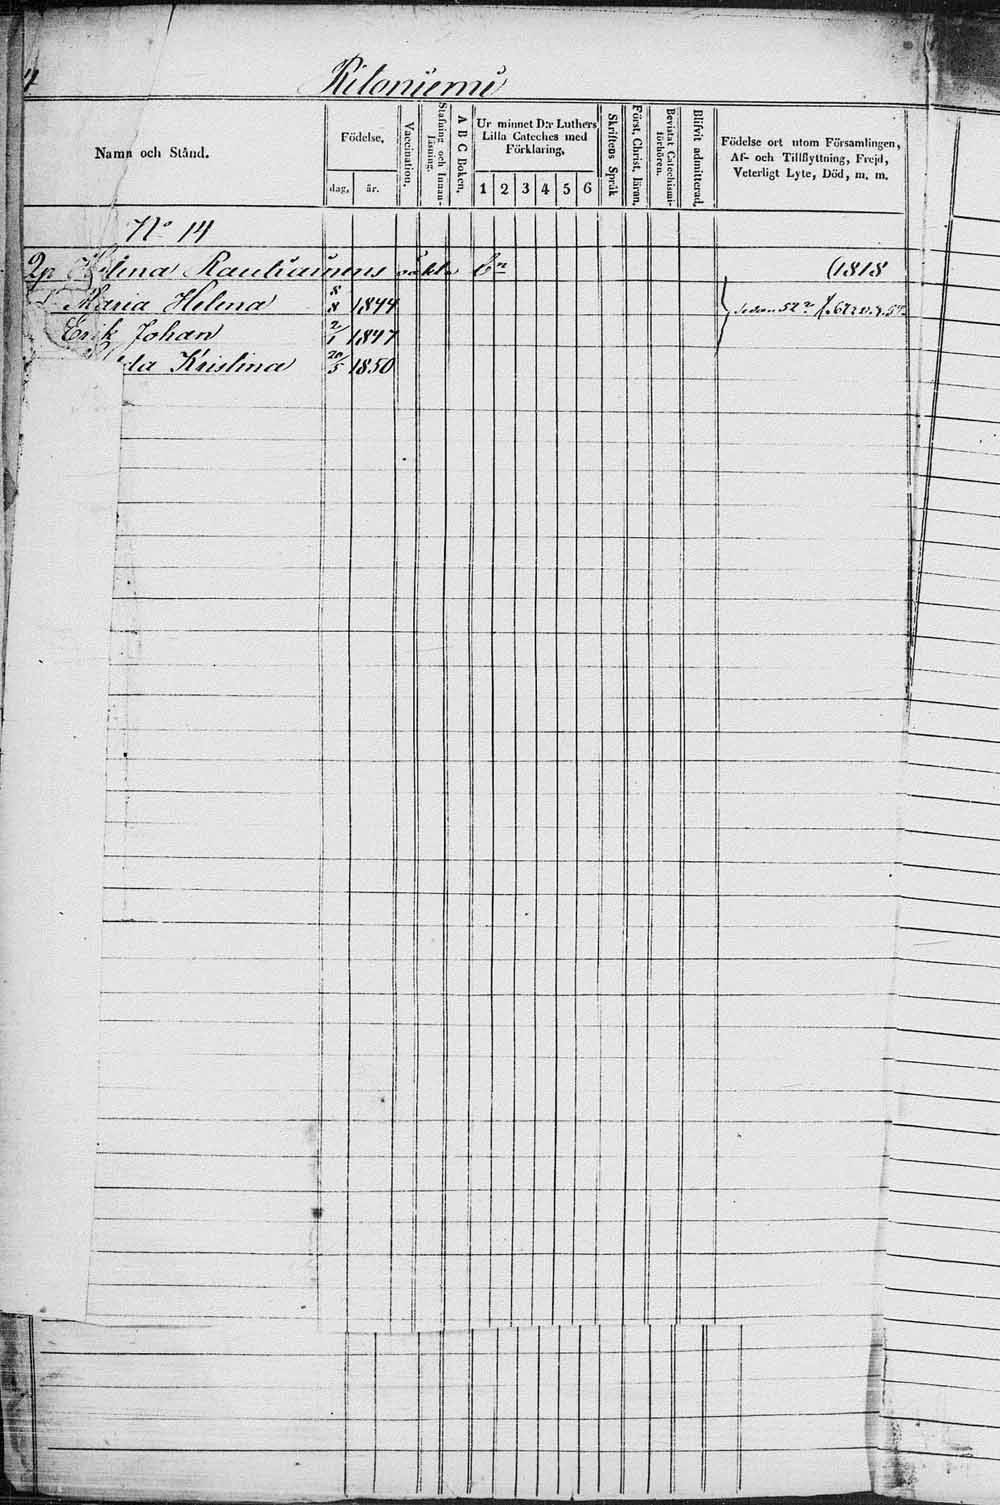 4
Kiloniemi
Namn och Stånd.
Födelse,
dag, år.
Vaccination.
Stafning och Innanläsning.
A B C Boken.
Ur minnet D:r Luthers Lilla Cateches med Förklaring,
1 2 3 4 5 6
Skriftens Språk
Först. Christ. läran.
Bevistat Catechismiförhören.
Blifvit admitterad.
Födelse ort utom Församlingen, Af- och Tillflyttning, Frejd, Veterligt Lyte, Död, m. m.
No 14
Helena (1818
Maria Helena 8/8 1844
Erik Johan 2/1 1847
da Kristina 20/5 1850